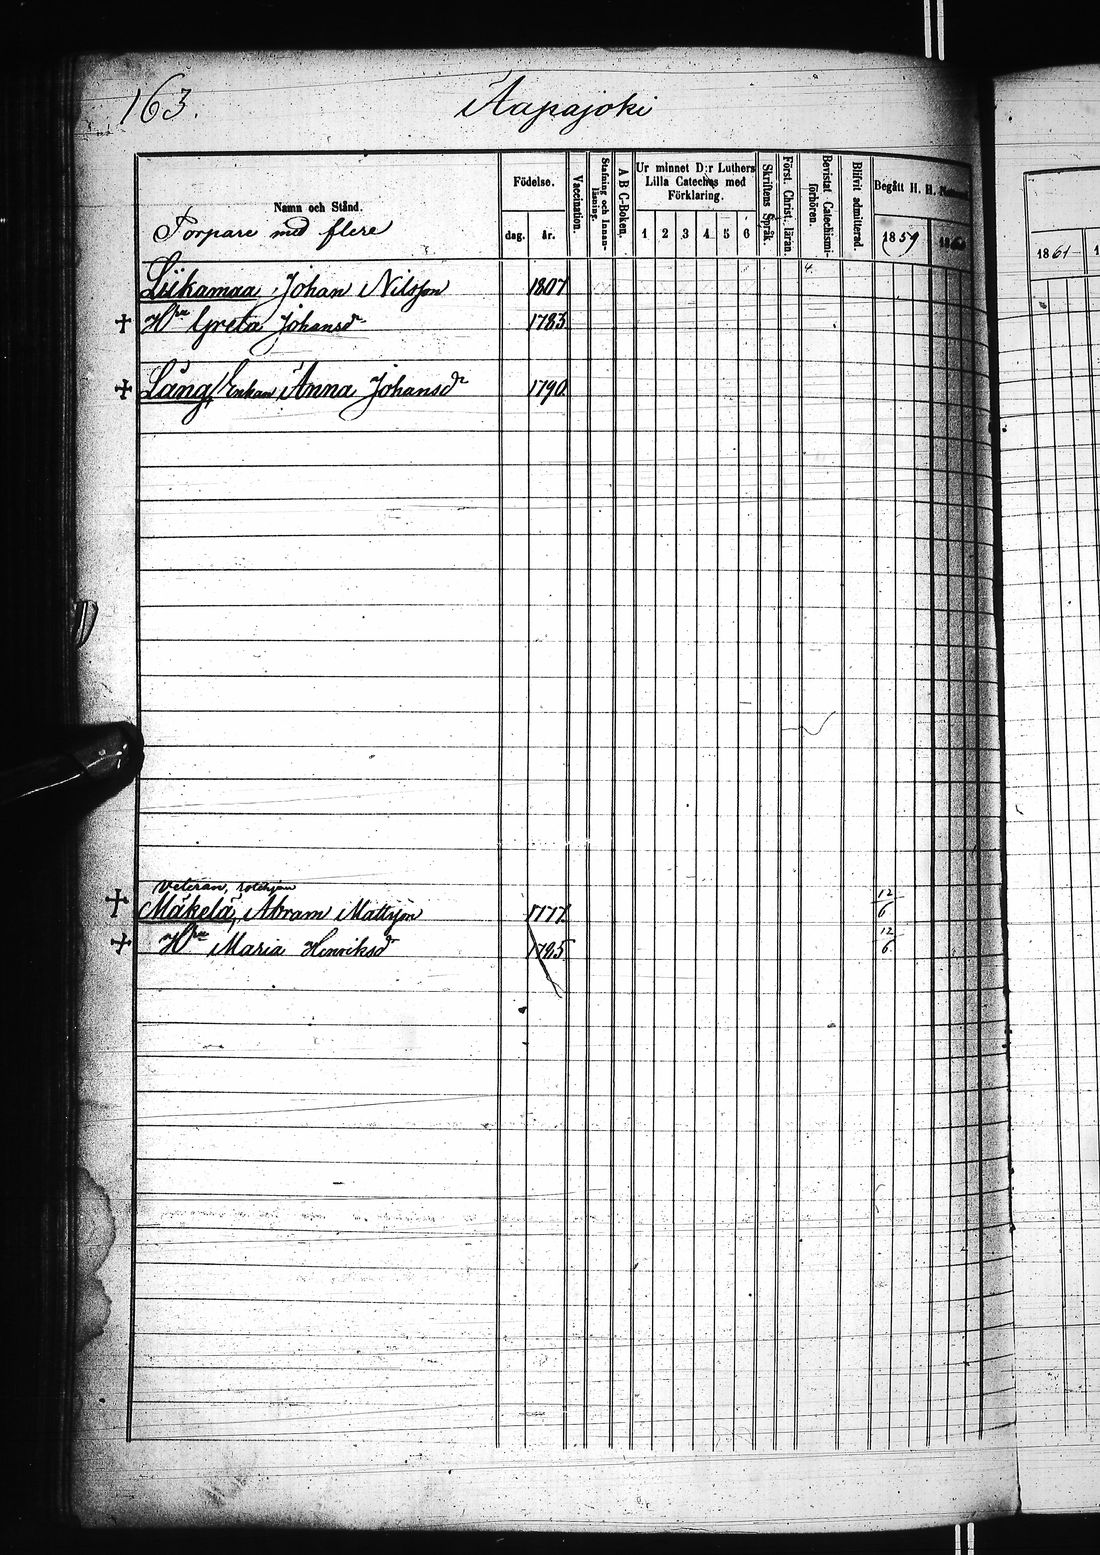 163. Aapajoki
Namn och Stånd.
Torpare med flere
Födelse.
dag. år.
Vaccination.
Stafning och Innanläsning.
A B C-Boken.
Ur minnet D:r Luthers Lilla Cateches med Förklaring.
1 2 3 4 5 6
Skriftens Språk.
Först. Christ. läran.
Bevistat Catechismiförhören.
Blifvit admitterad.
Begått H. H.
1859
1861
Liikamaa, Johan Nilsson 1807
+ Hu Greta Johansdr 1783
+ Lång, Enkan Anna Johansdr 1790
Veteran,
+ Mäkelä, Abram Mattsson 1777 12/6
+ Hu Maria Henriksdr 1795 12/6